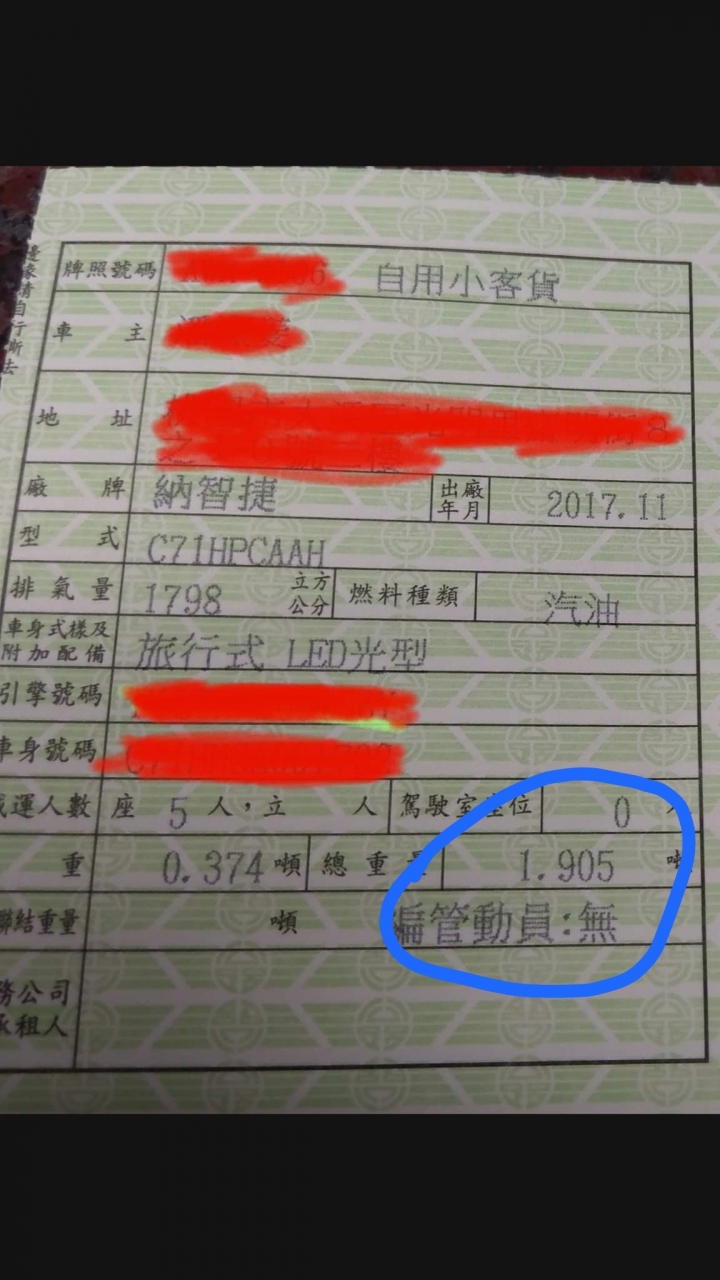 邊緣請自行撕去
牌照號碼 自用小客貨
車主
地址
廠牌 納智捷 出廠年月 2017.11
型式 C71HPCAAH
排氣量 1798 立方公分 燃料種類 汽油
車身式樣及附加配備 旅行式 LED光型
引擎號碼
車身號碼
載運人數 座 5 人,立 人 駕駛室座位 0 人
重 0.374 噸 總重量 1.905 噸
聯結重量 噸 編管動員:無
務公司
承租人